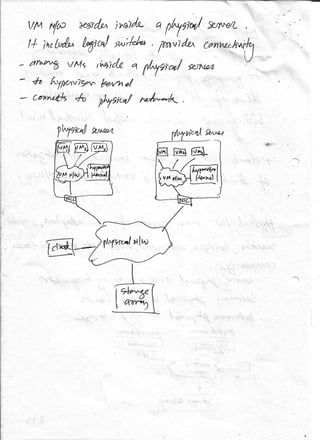 VM N/W resides inside a physical server.
It includes logical switches. provides connectivity
- among VMs inside a physical server
- to hypervisor kernel
- connects to physical network.
physical server
physical server
VM VM VM
VM VM VM
VM N/W
hypervisor kernel
VM N/W
hypervisor kernel
NIC
NIC
client
physical N/W
storage
array